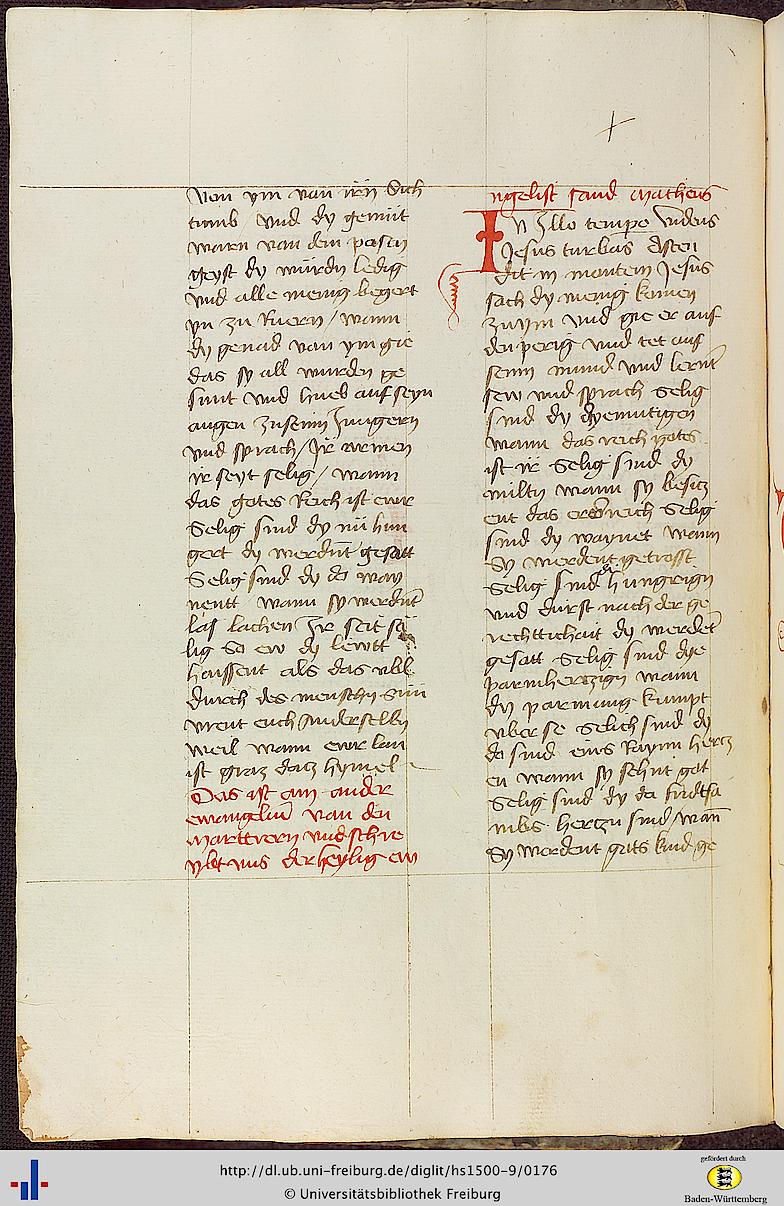 von ym van irn Sich
tumb / vnd dy gemüt
waren van dem posen
geyst dy würdn ledig
vnd alle menig begert
yn zu Ruern / wann
dy genad van ym gie
das sy all wurden ge
sunt vnd hueb auf seyn
augen zu seinn Jungern
vnd sprach / Jr armen
ir seyt selig / wann
das gotes Reich ist ewr
Selig sind dy nü hun
gert dy werdnt gesatt
Selig sind dy do way
nentt wann sy werdnt
las lachen Jr seit sä
lig So ew dy lewtt
haissent als das vbl
durch des menschn Sun
vrent euch Jnderselbn
weil wann ewr lan
ist graz datz hymel
Das ist ain ander
ewangeliu van den
martterern vnd schre
ybt vns der heylig ew
ngelist sand Matheus
In Jllo tempore videns
Jesus turbas Asten
dit in montem Jesus
sach dy menig komen
zu ym vnd gie er auf
den perig vnd tet auf
seinn mund vnd lernt
sew vnd sprach Selig
sind dy dyemutigen
wann das reich gotes
ist ir Selig sind dy
miltn wann sy besitz
ent das erdreich Selig
sind dy waynet wann
Sy werdent getrosst
Selig sind dy hungrign
vnd durst nach der ge
rechttichait dy werdet
gesatt Selig sind dye
parmhertzign wann
dy parmung kumpt
vber se Selich sind dy
do sind eins Raynn hertz
en wann sy sehnt got
Selig sind dy da fridtsa
mbs hertzn sind / wan
Sy werdent gots kind ge
http://dl.ub.uni-freiburg.de/diglit/hs1500-9/0176
© Universitätsbibliothek Freiburg
gefördert durch
Baden-Württemberg